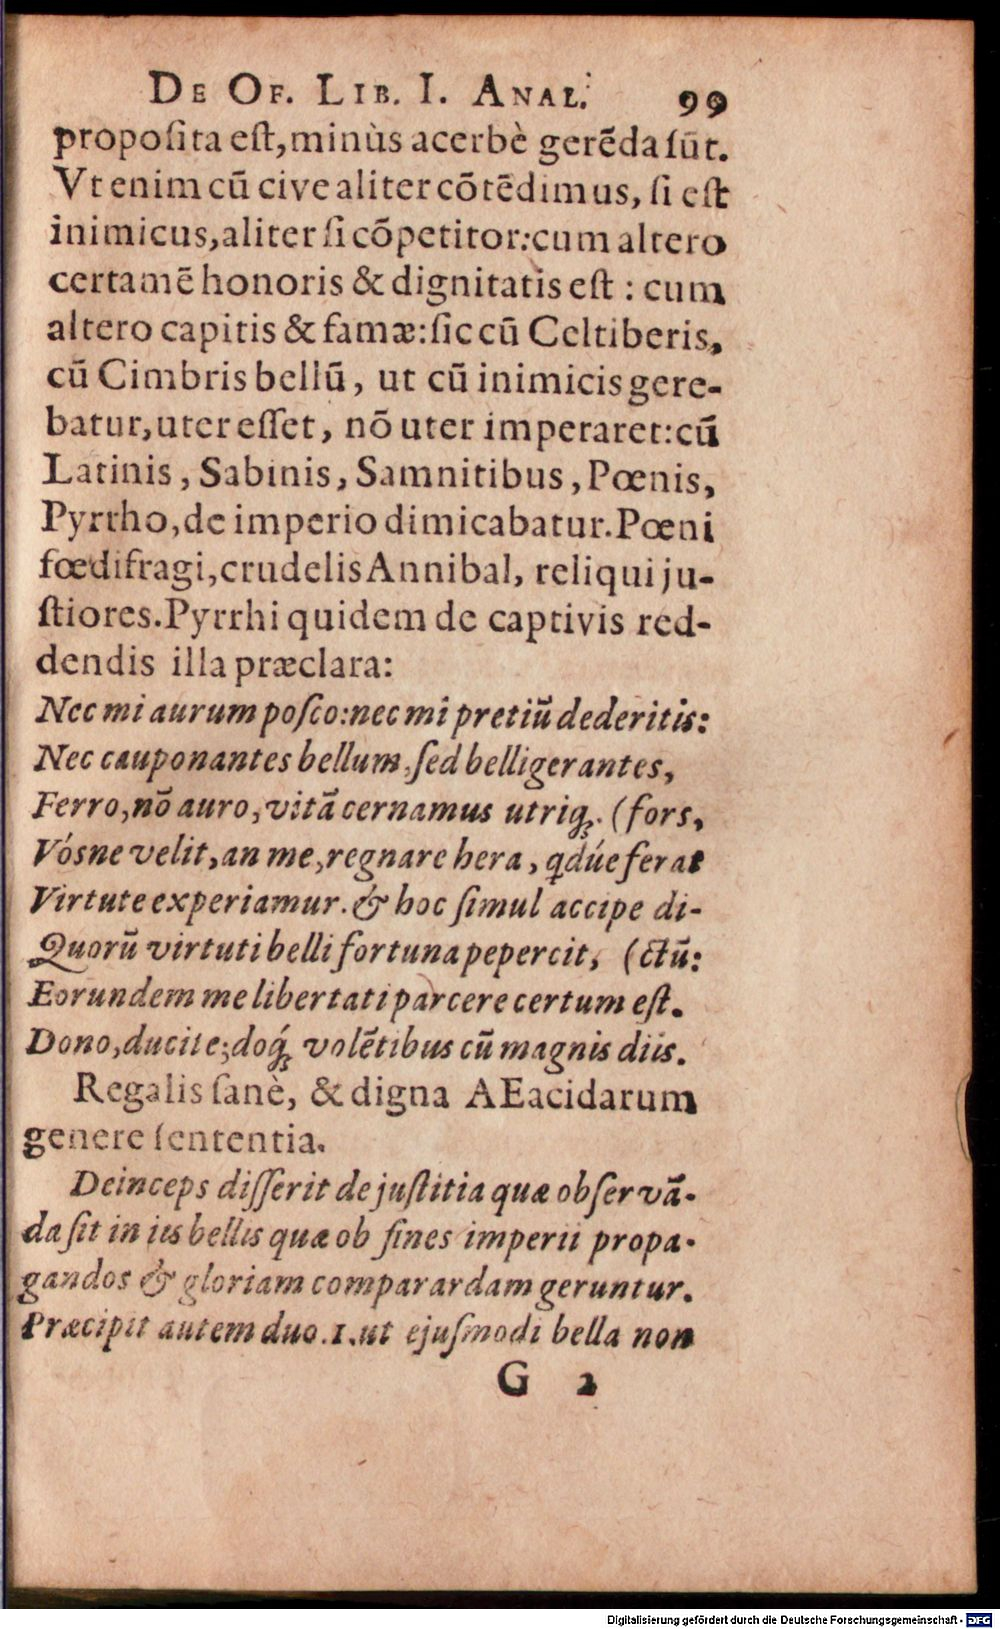 De Of. Lib. I. Anal. 99
proposita est, minùs acerbè gerēda sūt.
Vt enim cū cive aliter cōtēdimus, si est
inimicus, aliter si cōpetitor: cum altero
certamē honoris & dignitatis est : cum
altero capitis & famæ: sic cū Celtiberis,
cū Cimbris bellū, ut cū inimicis gere-
batur, uter esset, nō uter imperaret: cū
Latinis, Sabinis, Samnitibus, Pœnis,
Pyrrho, de imperio dimicabatur. Pœni
fœdifragi, crudelis Annibal, reliqui ju-
stiores. Pyrrhi quidem de captivis red-
dendis illa præclara:
Nec mi aurum posco: nec mi pretiū dederitis:
Nec cauponantes bellum, sed belligerantes,
Ferro, nō auro, vitā cernamus utriq;. (fors,
Vósne velit, an me, regnare hera, qdúe ferat
Virtute experiamur. & hoc simul accipe di-
Quorū virtuti belli fortuna pepercit, (ctū:
Eorundem me libertati parcere certum est.
Dono, ducite; doq́; volētibus cū magnis diis.
Regalis sanè, & digna AEacidarum
genere sententia.
Deinceps disserit de justitia quæ observā-
da sit in iis bellis quæ ob fines imperii propa-
gandos & gloriam comparardam geruntur.
Præcipit autem duo. 1. ut ejusmodi bella non
G 2
Digitalisierung gefördert durch die Deutsche Forschungsgemeinschaft - DFG